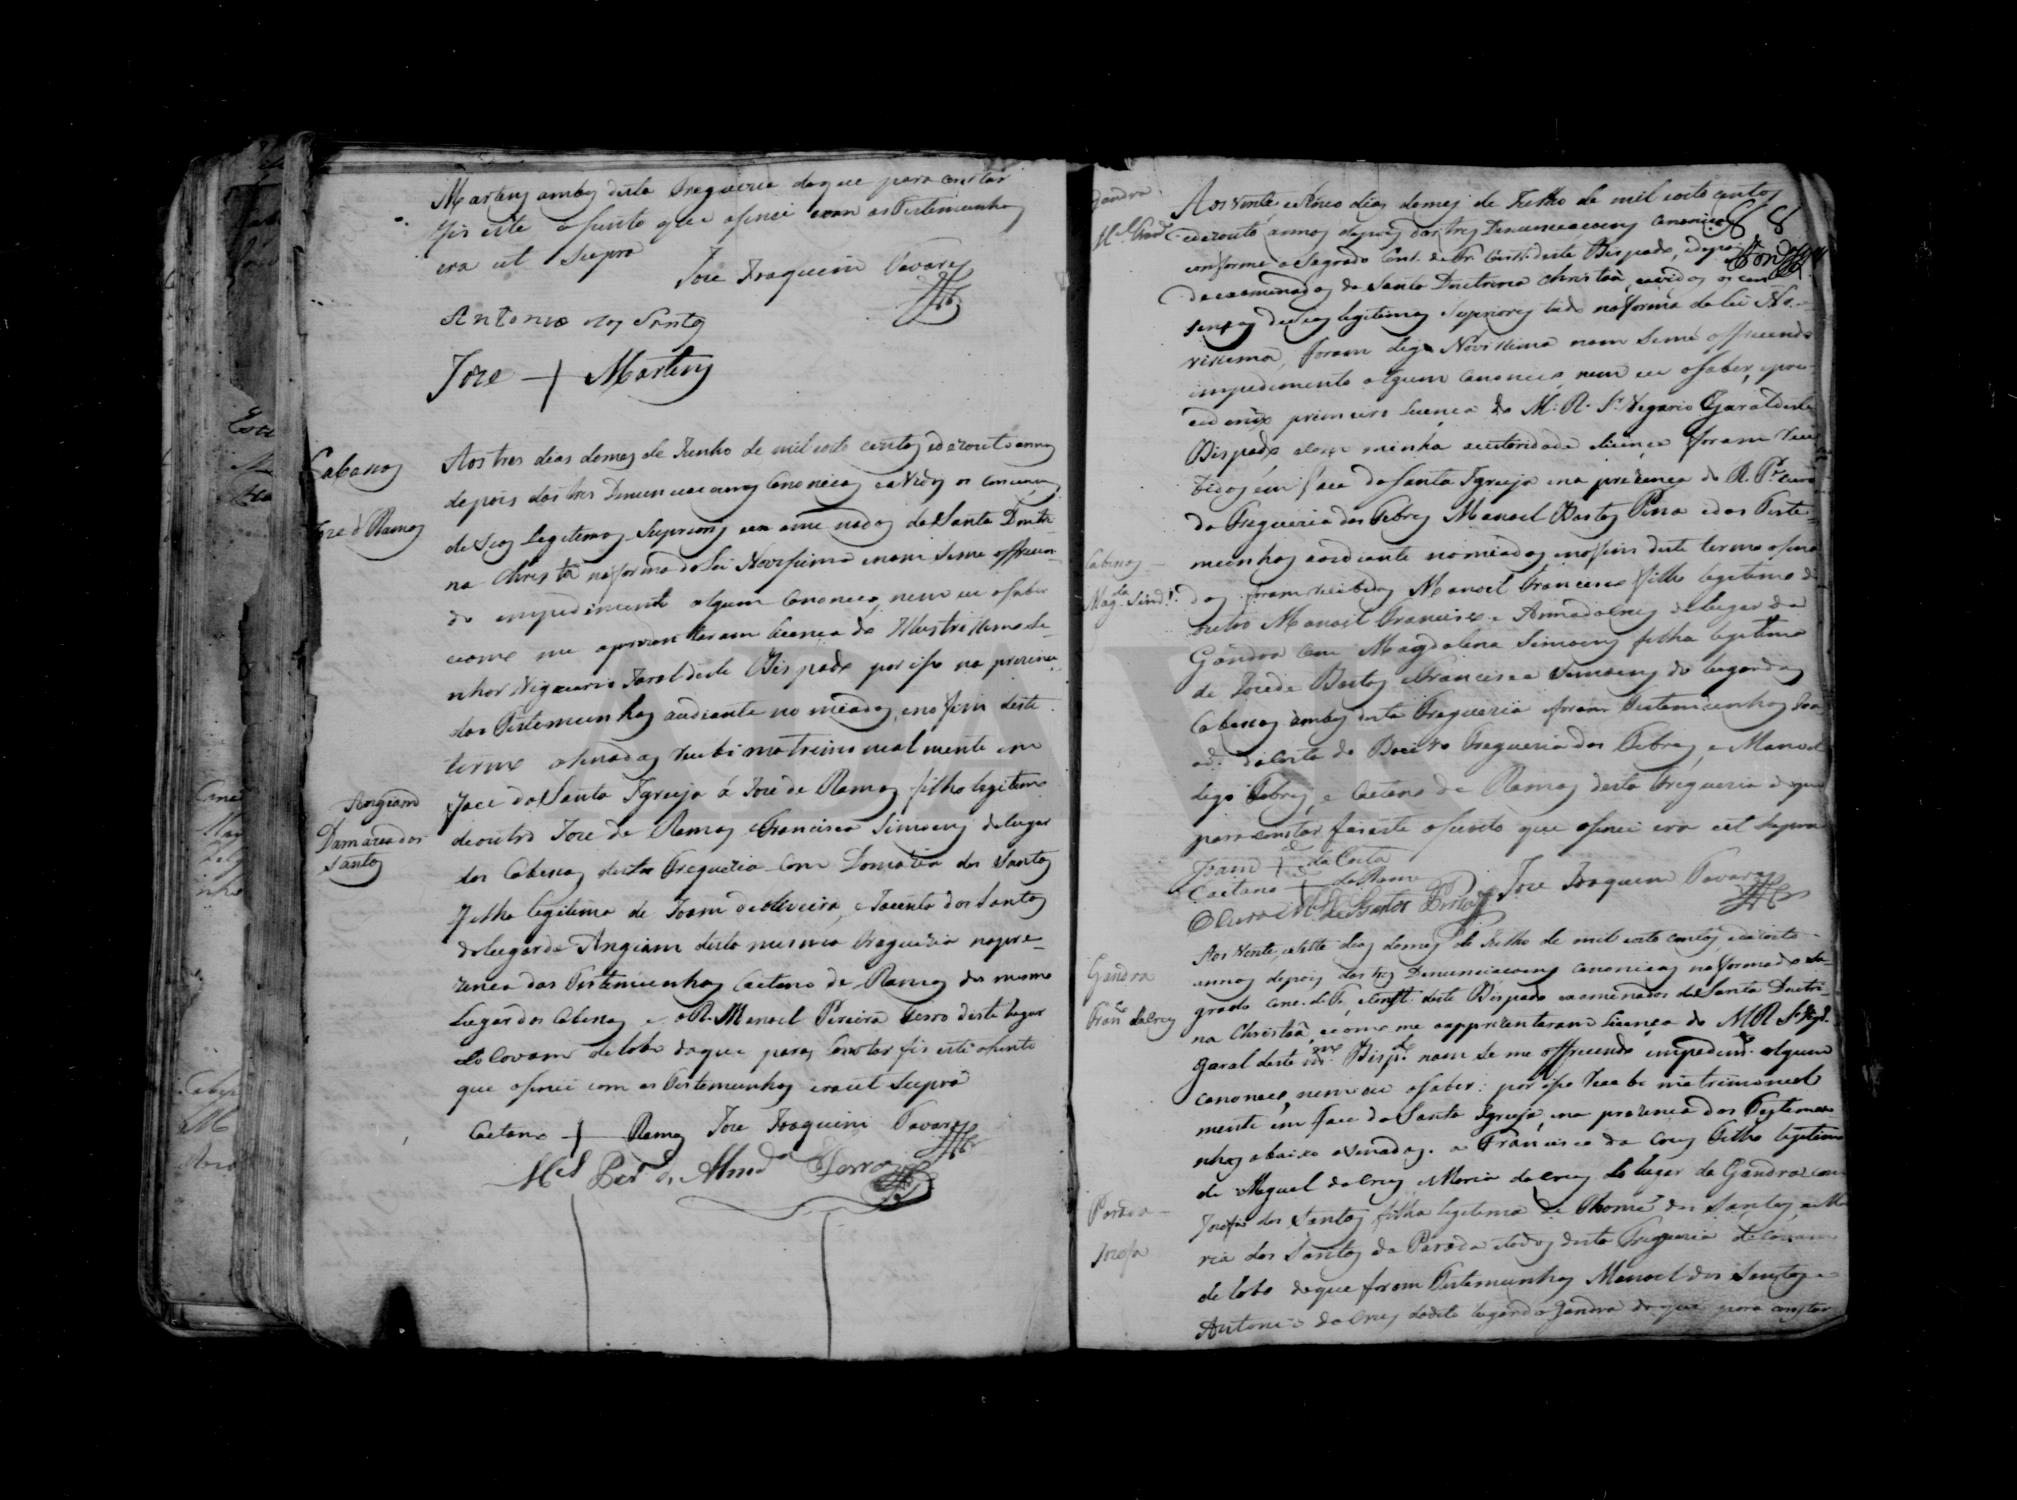 Martins ambos desta Freguezia doque para constar
fis este asento que asinei com as Testemunhas
era ut supra
Joze Joaquim Tavares
Antonio dos Santos
Joze + Martins
Cabenos
Joze d Ramos
Aos tres dias do mes de Junho de mil oito centos e dezouto annos
depois das tres Denunciacoens Canonicas e avidos os consensos
de seos legitimos Superiores examinados da Santa Doutri
na Christã na forma da Lei Novissima e nam se me offrecen
do empedimento algum Canonico, nem eu o saber
e como me aprezentaram licenca do Illustrissimo Se
nhor Viguario Jaral deste Bispado por iso na prezença
das Testemunhas audiante nomeadas, e no fim deste
termo asinadas recebi matrimonialmente em
face da Santa Igreija á Joze de Ramos filho legitimo
de outro Joze de Ramos e Francisca Simoens do lugar
dos Cabenos desta Freguezia com Damazia dos Santos
Angiam
Damazia dos
Santos
filha legitima de Joam de oliveira, e Jacinta dos Santos
do lugar de Angiam desta mesma Freguezia na pre
zenca das Testemunhas Caetano de Ramos do mesmo
Lugar dos Cabenos e o R. Manoel Pereira Serro deste lugar
de Covam de lobo doque para constar fis este asento
que asinei com as Testemunhas era ut Supra
Caetano + Ramos Joze Joaquim Tavares
Mel Per.ª de Almd.ª Serro
Gandra
M.el Fran.co
Aos vente e sinco dias do mes de Julho de mil oito centos
e dezouto annos depois das tres Denunciacoens Canonicas
88
conforme o Sagrado Conc. de Tr. Const. deste Bispado, e depois
de examinados da Santa Doutrina Christaã, e avidos os con
sensos de seos legitimos Superiores tudo na forma da lei No
vissema, foram digo Novissima nam se me offrecendo
impedimento algum canonico, nem eu o saber, e pre
cedendo primeiro licenca do M. R. Sr. Vegario Garal deste
Bispado e com minha autoridade e licença foram rece
bidos em face da Santa Igreija e na prezenca do R. P.e cura
da Freguezia dos Febres Manoel Bastos Pina e das Teste
munhas aodiante nomeadas e no fim deste termo asina
das foram recebidos Manoel Francisco filho legitimo de
Cabenos
Mag.da Sim.s
outro Manoel Francisco e Anna da Crus do lugar da
Gandra com Magdalena Simoens filha legitima
de Joze de Bastos e Francisca Simoens do lugar dos
Cabenos ambos desta Freguezia e foram Testemunhas Joa
da Costa do Freguezia dos Febres, e Manoel
digo Febres, e Caetano de Ramos desta Freguezia e doque
para constar fis este asento que asinei era ut supra
Joam + da Costa
Caetano + de Ramos
Joze Joaquim Tavares
O Cura M.el de Bastos Pina
Gandra
Fran.co da Crus
Aos vente e sette dias do mes de Julho de mil oito centos e dezoito
annos depois das tres Denunciacoens canonicas na forma do Sa
grado Conc. de Tr. e Const. deste Bispado examinados da Santa Doutri
na Christaã, e como me aapprezentaram licenca do M R Sr. Vig.
Garal deste m.mo Bisp.do nam se me offrecendo impedim.to algum
canonico, nem eu o saber: por iso recebi matrimonial
mente em face da Santa Igreija, e na prezenca das Testemu
nhas abaixo asinadas. a Francisco da Crus filho legitimo
de Miguel da Crus e Maria da Crus do lugar da Gandra com
Parada
Jozefa
Jozefa dos Santos filha legitima de Thomé dos Santos, e Ma
ria dos Santos da Parada todos desta Freguezia de Covam
de lobo doque foram Testemunhas Manoel dos Santos e
Antonio da Crus do dito lugar da Gandra doque para constar